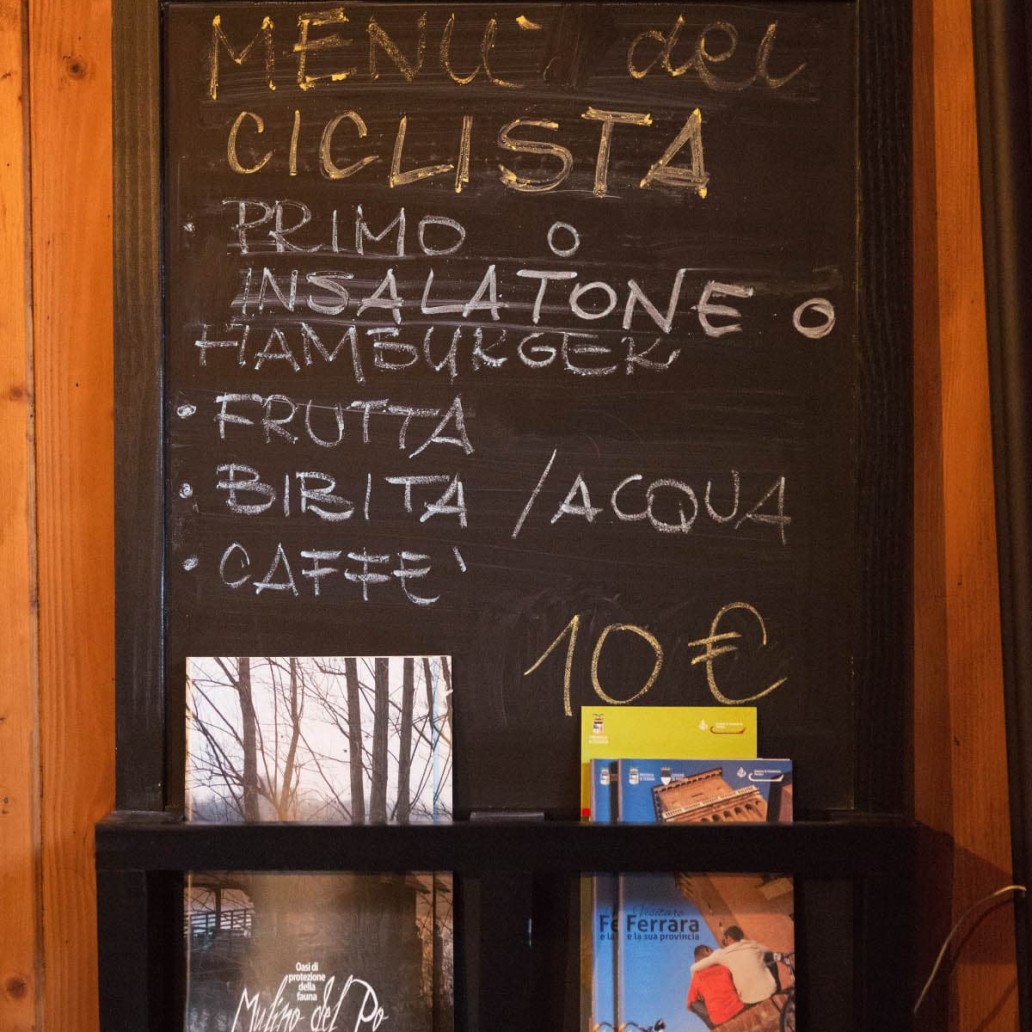 MENÙ del
CICLISTA
· PRIMO O
INSALATONE O
HAMBURGER
· FRUTTA
· BIBITA / ACQUA
· CAFFE'
10 €
Oasi di
protezione
della
fauna
Mulino del Po
Visitare
Ferrara
e la sua provincia